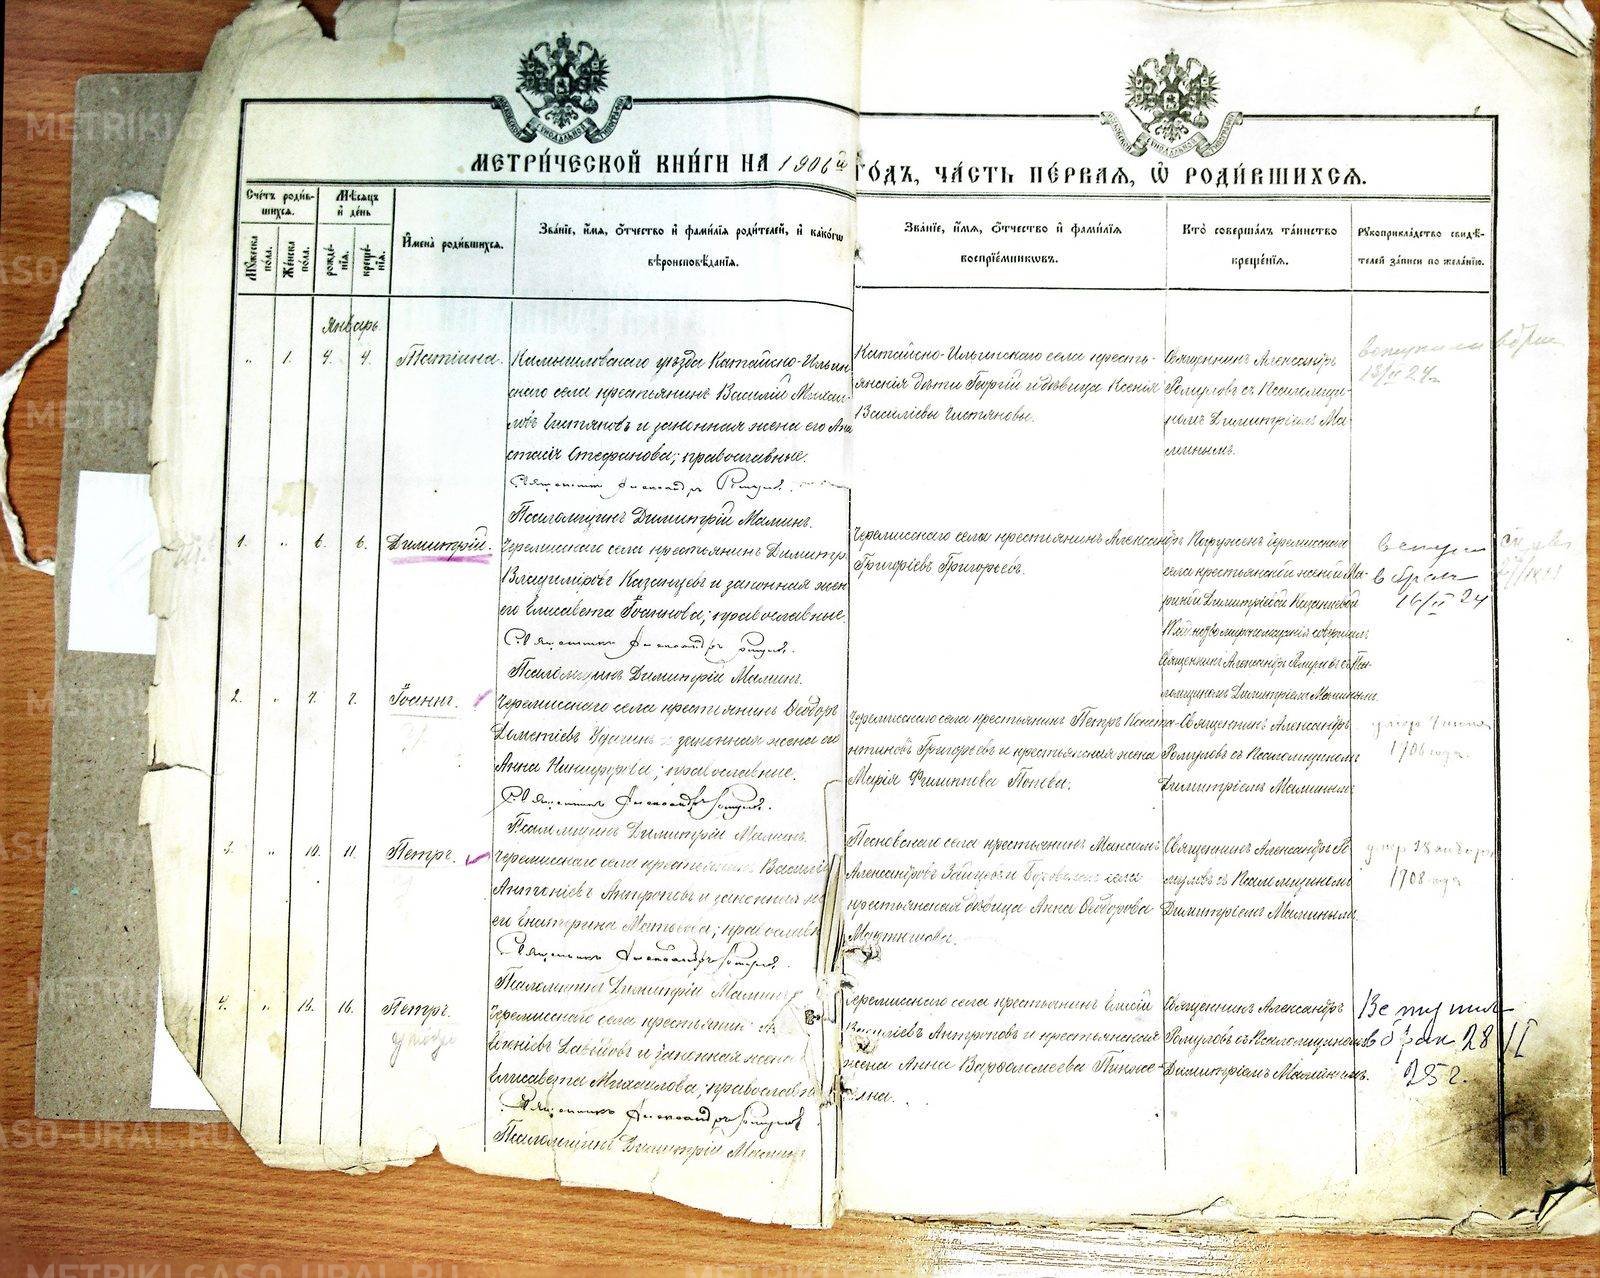 МЕТРИ́ЧЕСКОЙ КНИ́ГИ НА 1906й ГО́ДЪ, ЧА́СТЬ ПЕ́РВАЯ, Ѡ҆ РОДИ́ВШИХСЯ.
Сче́тъ роди́в-
шихся.
Мѣ́сяцъ
и҆ де́нь
Му́жеска
по́ла.
Же́нска
по́ла.
рожде́-
нїя.
креще́-
нїя.
И҆мена̀ роди́вшихся.
Зва́нїе, и҆́мя, ѻ҆́тчество и҆ фами́лїя роди́телей, и҆ како́гѡ
вѣроисповѣ́данїя.
Зва́нїе, и҆́мя, ѻ҆́тчество и҆ фами́лїя
воспрїе́мникѡвъ.
Кто̀ соверша́лъ та́инство
креще́нїя.
Рꙋкоприкла́дство свидѣ́-
телей за́писи по жела́нїю.
Январь.
" 1. 4. 4. Татіана.
Камышловскаго уѣзда Катайско-Ильин
скаго села крестьянинъ Василій Михаи-
ловъ Чистяковъ и законная жена его Ана
стасія Стефанова; православные.
Священникъ Александръ Ромуловъ.
Псаломщикъ Димитрій Маминъ.
Катайско-Ильинскаго села кресть-
янскія дѣти Георгій и дѣвица Ксенія
Василіевы Чистяковы.
Священникъ Александръ
Ромуловъ съ Псаломщи-
комъ Димитріемъ Ма-
минымъ.
вступила въ бракъ
1. " 6. 6. Димитрій.
Черемисскаго села крестьянинъ Димитрі
Владиміровъ Казанцевъ и законная жен
его Елисавета Іоаннова; православные.
Священникъ Александръ Ромуловъ.
Псаломщикъ Димитрій Маминъ.
Черемисскаго села крестьянинъ Александръ
Григоріевъ Григорьевъ.
Погруженъ Черемисскаго
села крестьянской женой Ма-
риной Димитріевой Казанцевой
Священникъ Александръ Ромуловъ съ Пса-
ломщикомъ Димитріемъ Маминымъ.
вступил
в брак
16/II 24
2. " 7. 7. Іоаннъ.
Черемисскаго села крестьянинъ Ѳеодоръ
Дометіевъ и законная жена его
Анна Никифорова; православные.
Священникъ Александръ Ромуловъ.
Псаломщикъ Димитрій Маминъ.
Черемисскаго села крестьянинъ Петръ Конста-
нтиновъ Григорьевъ и крестьянская жена
Марія Филиппова Попова.
Священникъ Александръ
Ромуловъ съ Псаломщикомъ
Димитріемъ Маминымъ
1906 года.
3. " 10. 11. Петръ.
Черемисскаго села крестьянинъ Василій
Антоніевъ Антроповъ и законная же
его Екатерина Матѳеева; православн
Священникъ Александръ Ромуловъ.
Псаломщикъ Димитрій Маминъ
села крестьянинъ Максимъ
Александровъ Зайцевъ и села
крестьянская дѣвица Анна Ѳеодорова
Священникъ Александръ Ро-
муловъ съ Псаломщикомъ
Димитріемъ Маминымъ.
1908 года
4. " 15. 16. Петръ.
Черемисскаго села крестьянинъ
и законная жена
Елисавета Михаилова; православн
Священникъ Александръ Ромуловъ
Псаломщикъ Димитрій Маминъ
Черемисскаго села крестьянинъ
Василіевъ Антроповъ и крестьянская
жена Анна Варѳоломеева
Священникъ Александръ
Ромуловъ съ Псаломщикомъ
Димитріемъ Маминымъ.
Вступил
в брак 28/II
25 г.
METRIKI.GASO-URAL.RU